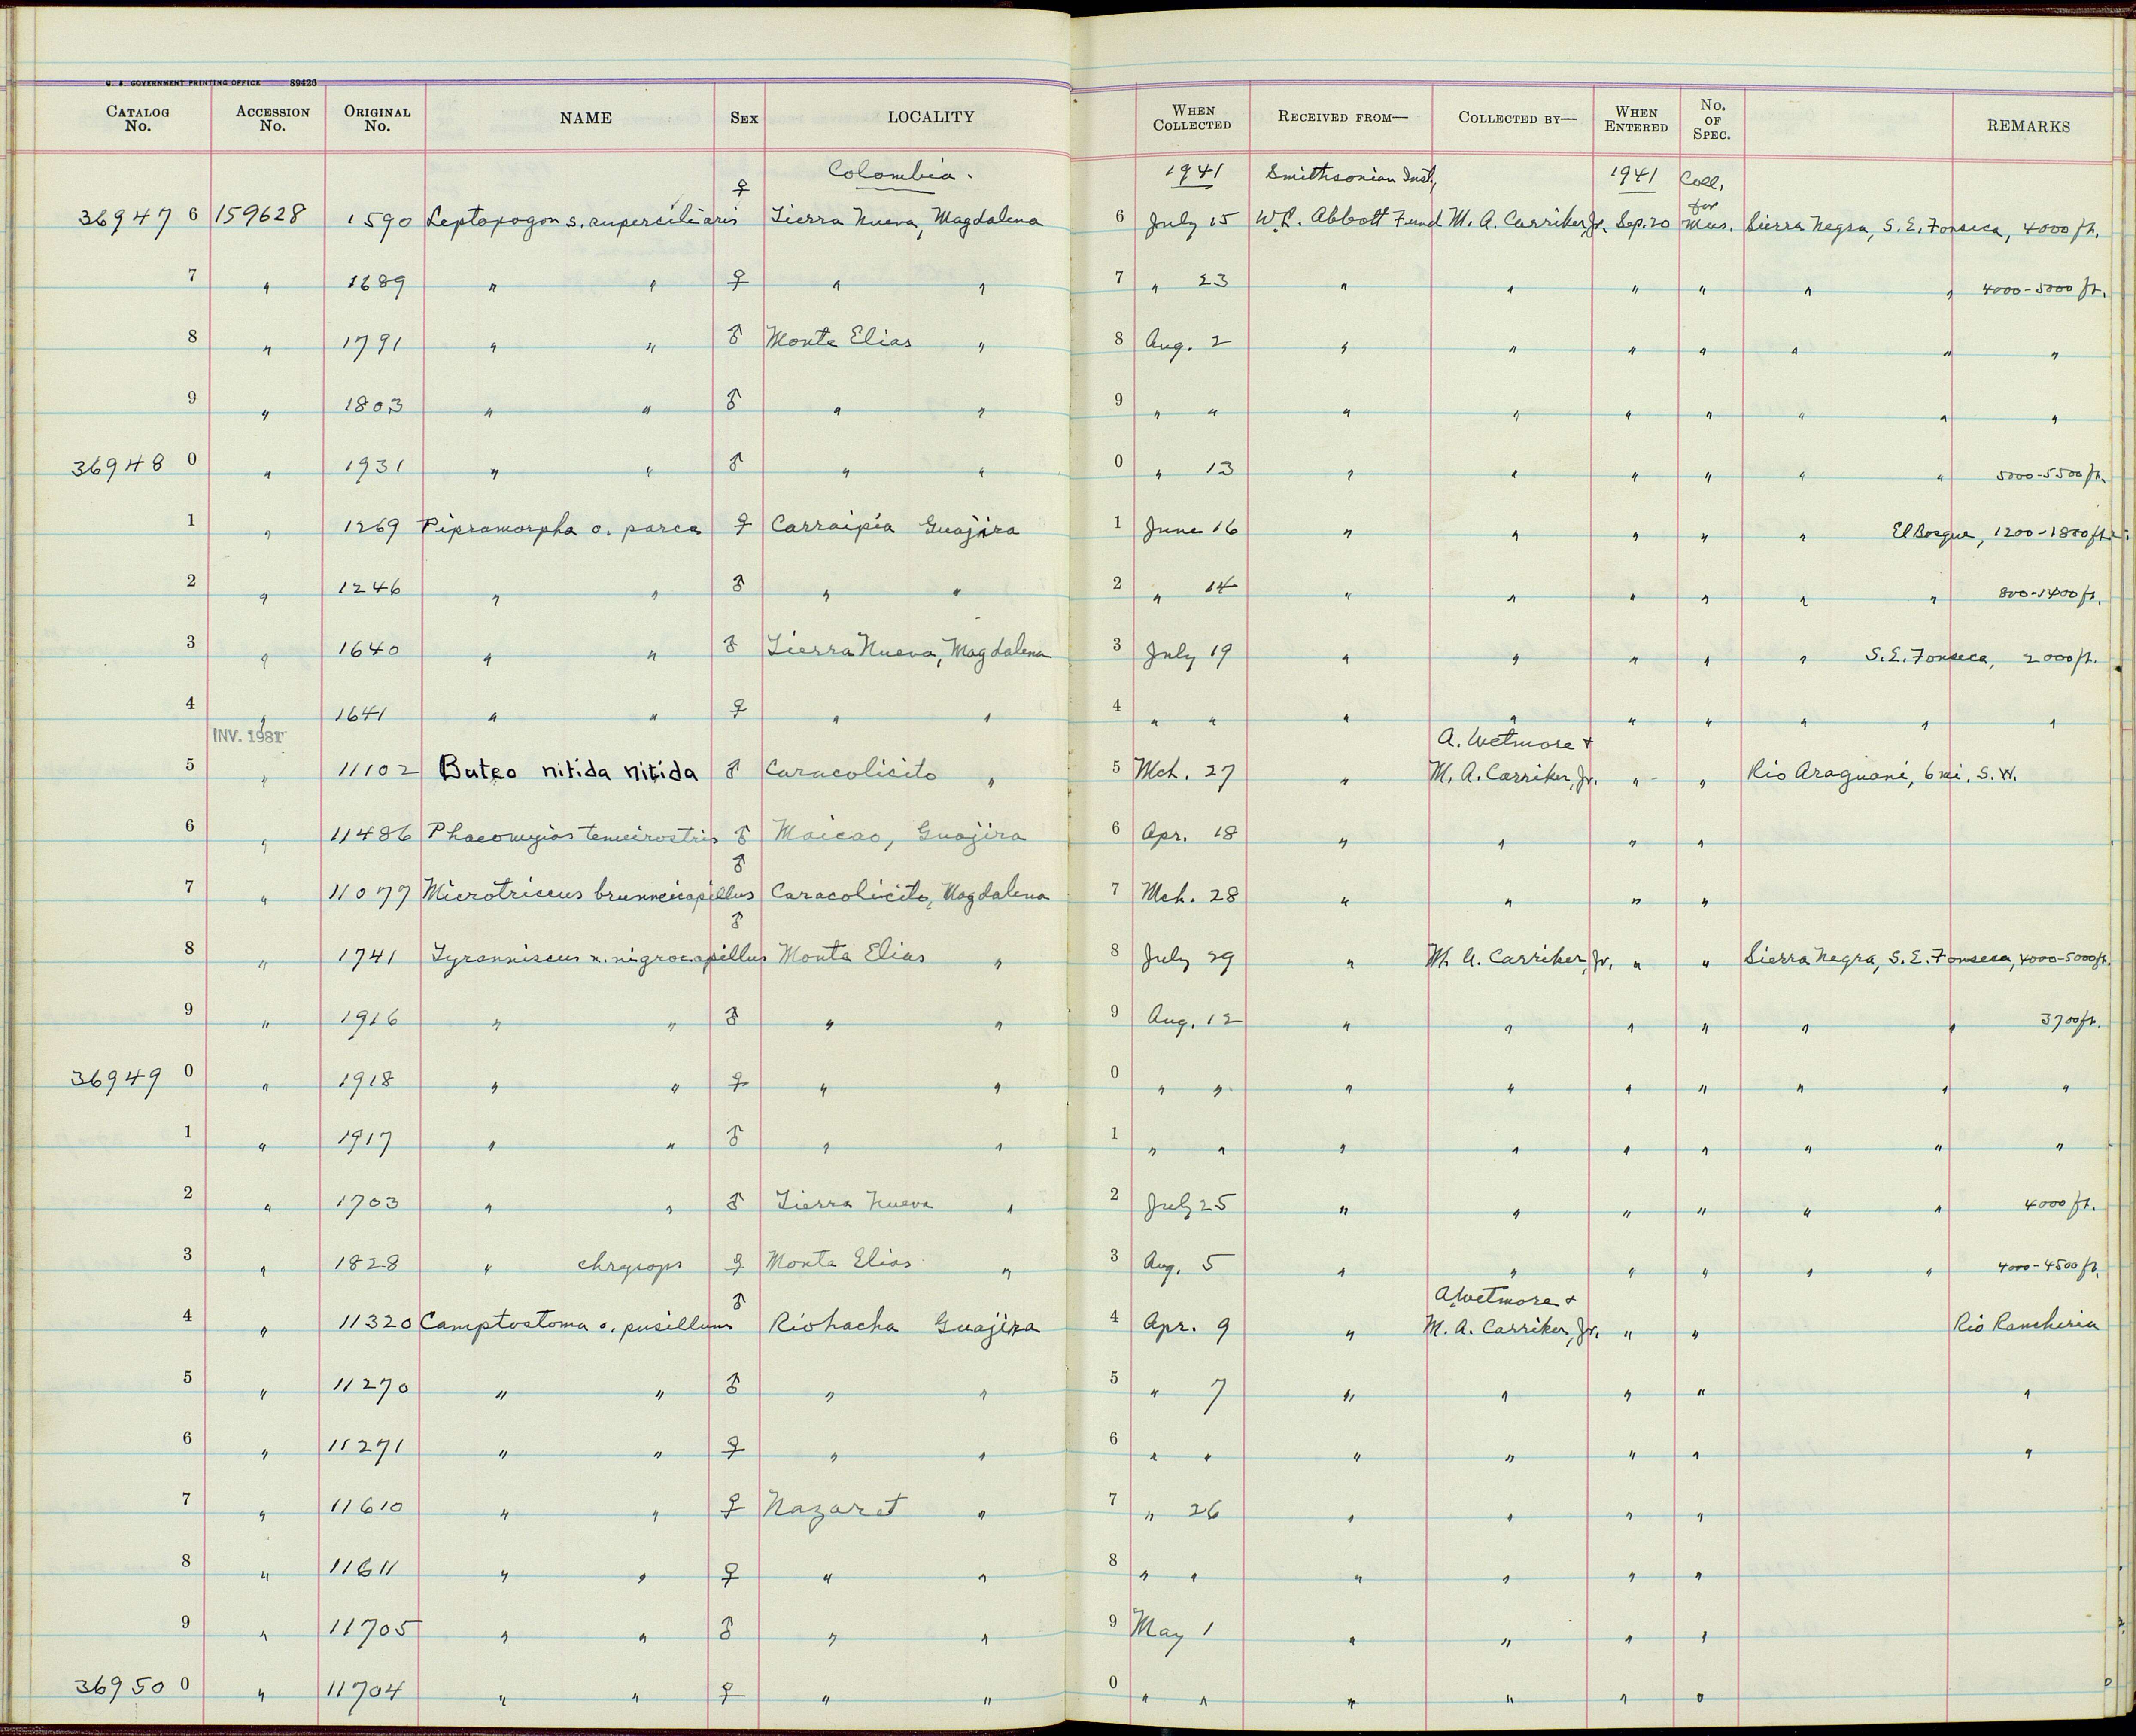 U. S. GOVERNMENT PRINTING OFFICE 89426
CATALOG No. ACCESSION No. ORIGINAL No. NAME SEX LOCALITY WHEN COLLECTED RECEIVED FROM— COLLECTED BY— WHEN ENTERED No. OF SPEC. REMARKS
Colombia. 1941 Smithsonian Inst., 1941 Coll. for
36947 6 159628 1590 Leptopogon s. superciliaris ♀ Tierra Nueva, Magdalena 6 July 15 W. L. Abbott Fund M. A. Carriker, Jr. Sep. 20 Mus. Sierra Negra, S.E. Fonseca, 4000 ft.
7 " 1689 " " ♀ " " 7 " 23 " " " " " " 4000-5000 ft.
8 " 1791 " " ♂ Monte Elias " 8 Aug. 2 " " " " " " "
9 " 1803 " " ♂ " " 9 " " " " " " " " "
36948 0 " 1931 " " ♂ " " 0 " 13 " " " " " " 5000-5500 ft.
1 " 1269 Pipromorpha o. parca ♀ Carraipia Guajira 1 June 16 " " " " " El Bosque, 1200-1800 ft.
2 " 1246 " " ♂ " " 2 " 14 " " " " " " 800-1400 ft.
3 " 1640 " " ♂ Tierra Nueva, Magdalena 3 July 19 " " " " " S.E. Fonseca, 2000 ft.
4 " 1641 " " ♀ " " 4 " " " " " " " " "
INV. 1981 A. Wetmore &
5 " 11102 Buteo nitida nitida ♂ Caracolicito " 5 Mch. 27 " M. A. Carriker, Jr. " " Rio Araguani, 6 mi. S.W.
6 " 11486 Phaeomyias tenuirostris ♂ Maicao, Guajira 6 Apr. 18 " " " "
7 " 11077 Microtriccus brunneicapillus ♂ Caracolicito, Magdalena 7 Mch. 28 " " " "
8 " 1741 Tyranniscus n. nigrocapillus ♂ Monte Elias " 8 July 29 " M. A. Carriker, Jr. " " Sierra Negra, S.E. Fonseca, 4000-5000 ft.
9 " 1916 " " ♂ " " 9 Aug. 12 " " " " " " 3700 ft.
36949 0 " 1918 " " ♀ " " 0 " " " " " " " " "
1 " 1917 " " ♂ " " 1 " " " " " " " " "
2 " 1703 " " ♂ Tierra Nueva " 2 July 25 " " " " " " 4000 ft.
3 " 1828 " chrysops ♀ Monte Elias " 3 Aug. 5 " " " " " " 4000-4500 ft.
A. Wetmore &
4 " 11320 Camptostoma o. pusillum ♂ Riohacha Guajira 4 Apr. 9 " M. A. Carriker, Jr. " " Rio Rancheria
5 " 11270 " " ♂ " " 5 " 7 " " " " "
6 " 11271 " " ♀ " " 6 " " " " " " "
7 " 11610 " " ♀ Nazaret " 7 " 26 " " " "
8 " 11611 " " ♀ " " 8 " " " " " "
9 " 11705 " " ♂ " " 9 May 1 " " " "
36950 0 " 11704 " " ♀ " " 0 " " " " " "